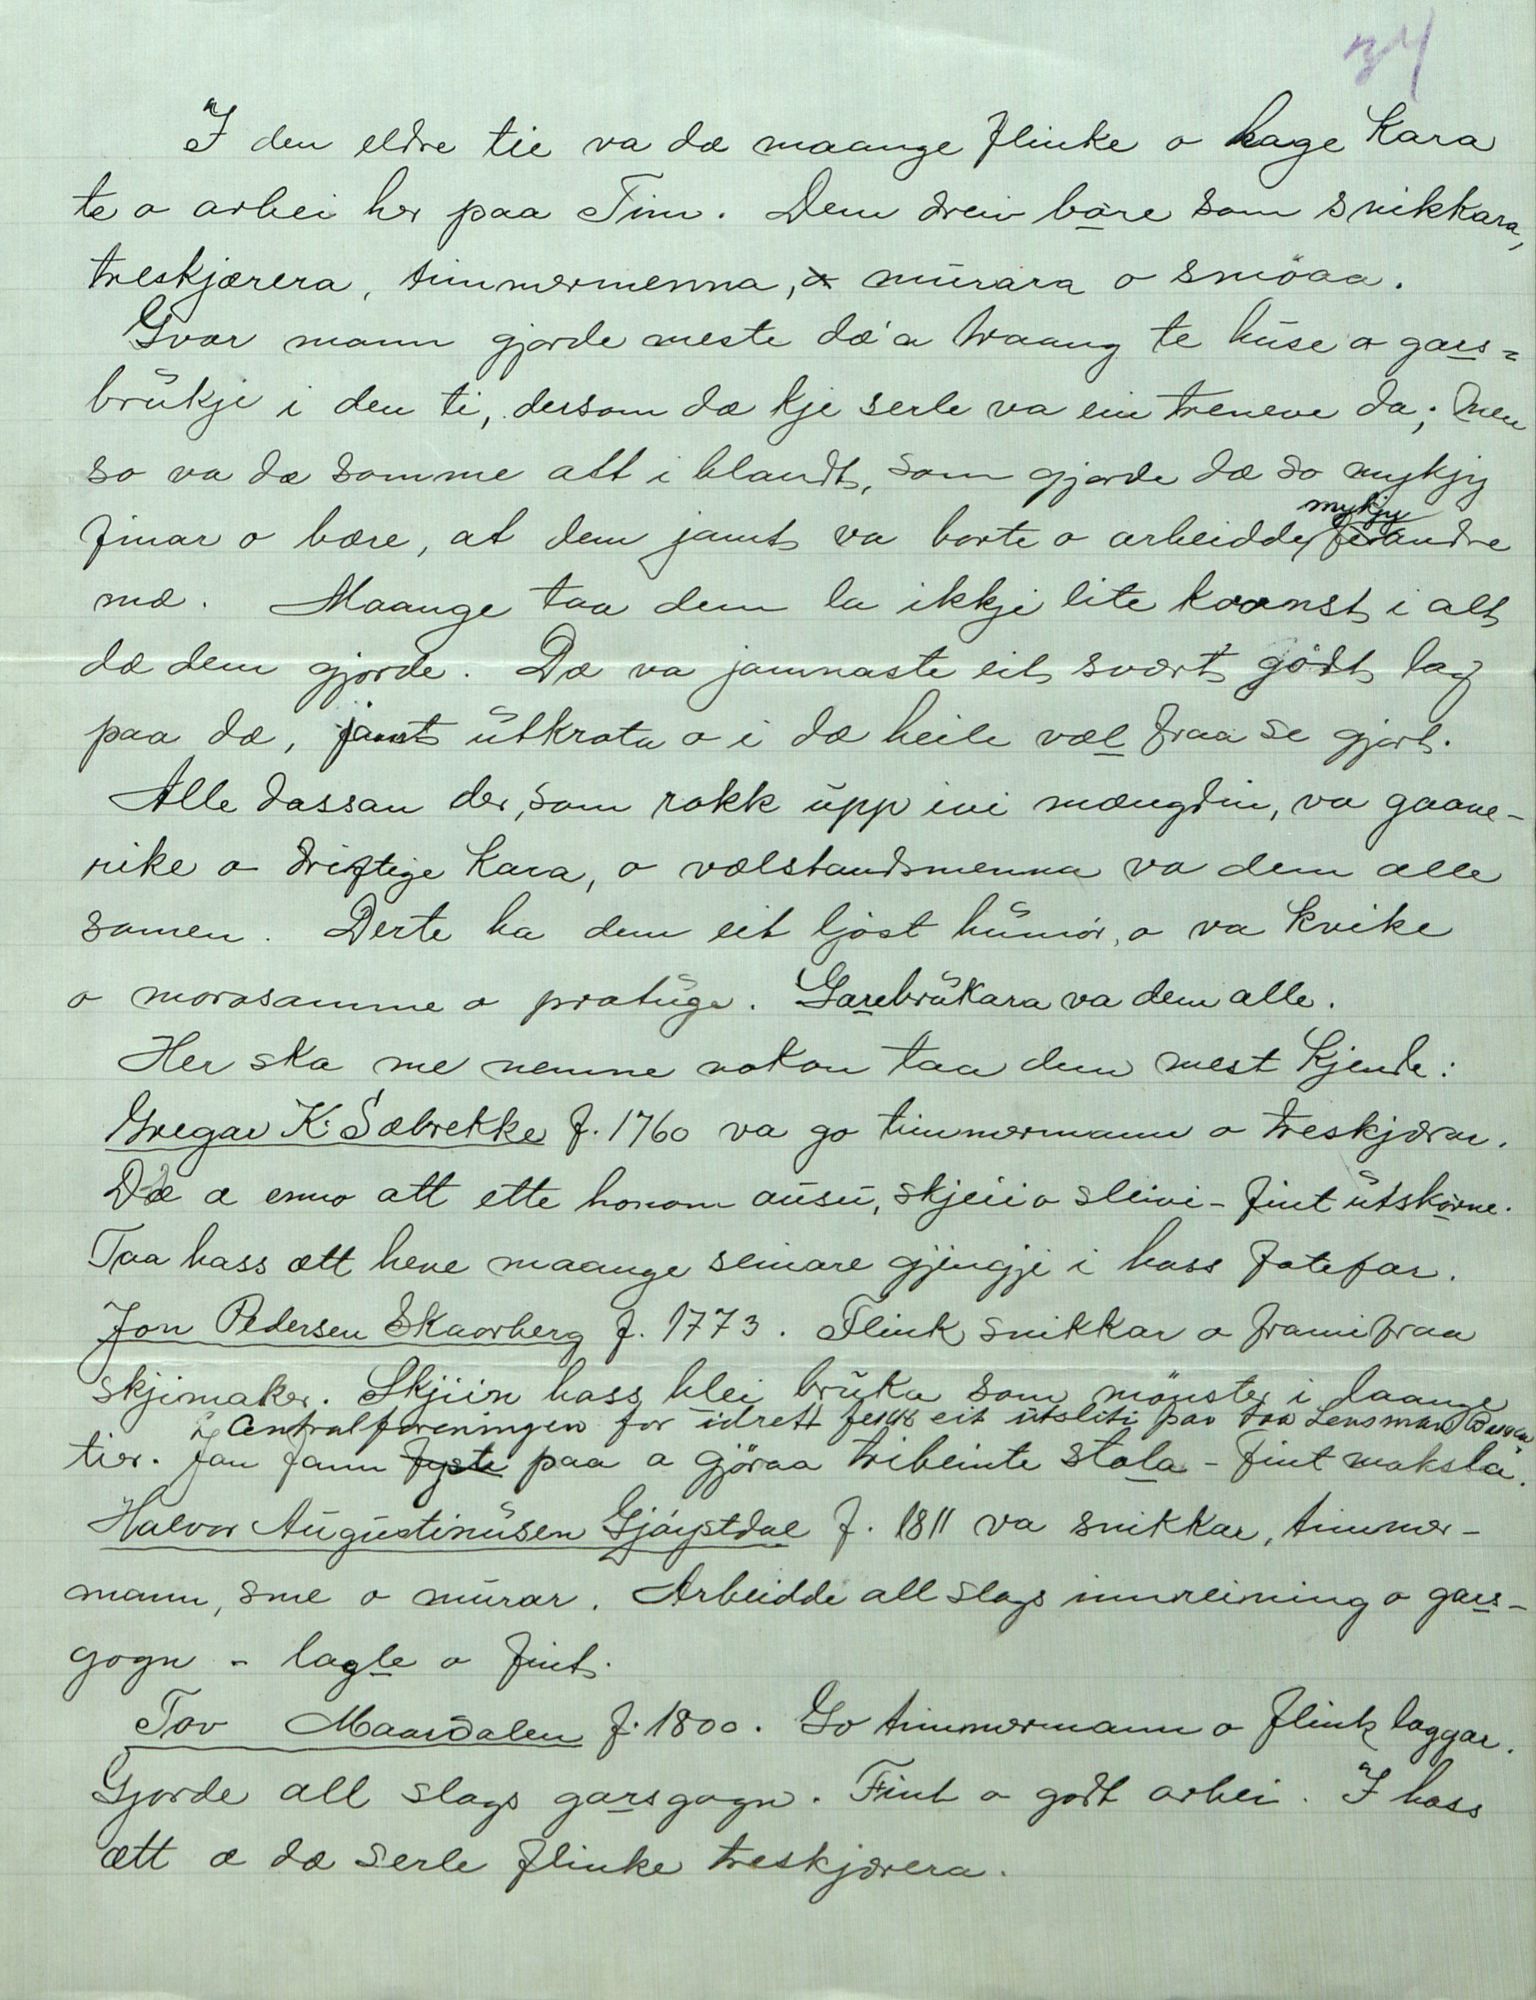 34
I den eldre tie va dæ maange flinke o hage kara
te o arbei her paa Tinn. Dem dreiv båre som snikkara,
treskjærera, timmermenna, o murara o smöaa.
Gvar mann gjorde meste dæ'a traang te huse o gars=
brükje i den ti, dersom dæ kje serle va ein treneve da; men
so va dæ somme att i blandt, som gjorde dæ so mykjy
finar o bære, at dem jamt va borte o arbeidde mykjy fer andre
mæ. Maange taa dem la ikkje lite koonst i alt
dæ dem gjorde. Dæ va jamnaste eit svært gödt lag
paa dæ, jamt ütkrota o i dæ heile væl fraa se gjort.
Alle dassan der, som rakk üpp ivi mængdin, va gaave-
rike o driftige kara, o vælstandsmenna va dem alle
samen. Derte ha dem eit ljöst hümör, o va kvike
o morosamme o pratüge. Garebrükara va dem alle.
Her ska me nemne nokon taa dem mest kjende:
Gregar K. Sæbrekke f. 1760 va go timmermann o treskjærar.
Dæ æ enno att ette honom ausu, skjeii o sleivi - fint ütskorne.
Taa hass ætt heve maange seinare gjengje i hass fotefar.
Jon Pedersen Skaarberg f. 1773. Flink snikkar o framifraa
skjimaker. Skjiin hass blei brüka som mönster i laange
I Centralforeningen for idrett fenns eit ütsliti par taa Lensmann
tier. Jan fann fyste paa a gjöraa tribeinte stola - fint maksla.
Halvor Augustinüsen Gjöystdal f. 1811 va snikkar, timmer-
mann, sme o murar. Arbeidde all slags innreining o gars-
gogn - lagle o fint.
Tov Maardalen f. 1800. Go timmermann o flink laggar.
Gjorde all slags garsgogn. Fint o godt arbei. I hass
ætt æ dæ serle flinke treskjærera.